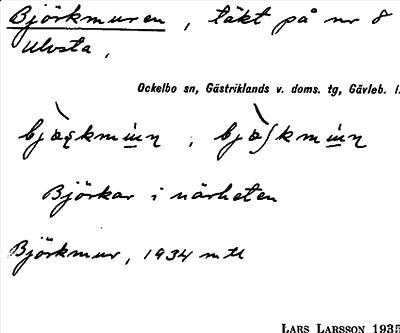 Björkmuren, täkt på nr 8
Ulvsta,
Ockelbo sn, Gästriklands v. doms. tg, Gävleb. l.
Björkar i närheten
Björkmur, 1934 mtl
LARS LARSSON 1935